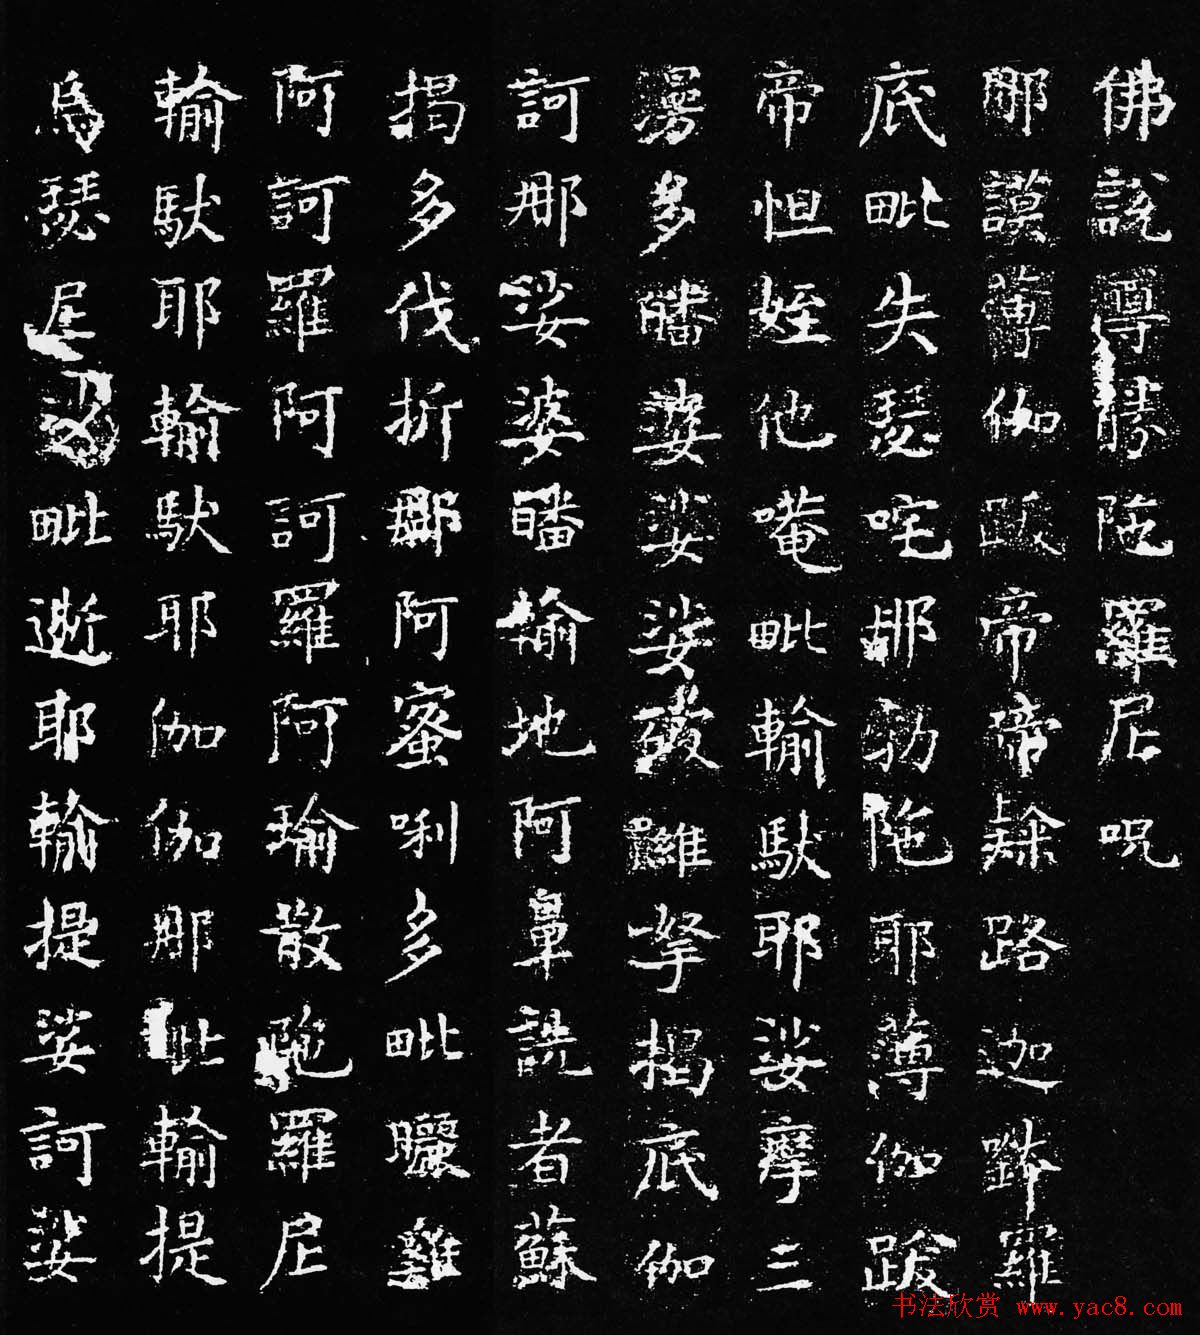 佛說尊勝陁羅尼呪
那謨薄伽跋帝帝隸路迦跢羅
底毗失瑟咤那勃陁耶薄伽跋
帝怛姪他唵毗輸馱耶娑摩三
漫多皤婆娑娑破囉拏揭底伽
訶那娑婆皤輸地阿鼻詵者蘇
揭多伐折那阿蜜唎多毗曬雞
阿訶羅阿訶羅阿瑜散陁羅尼
輸馱耶輸馱耶伽伽那毗輸提
烏瑟尼沙毗逝耶輸提娑訶娑
书法欣赏 www.yac8.com